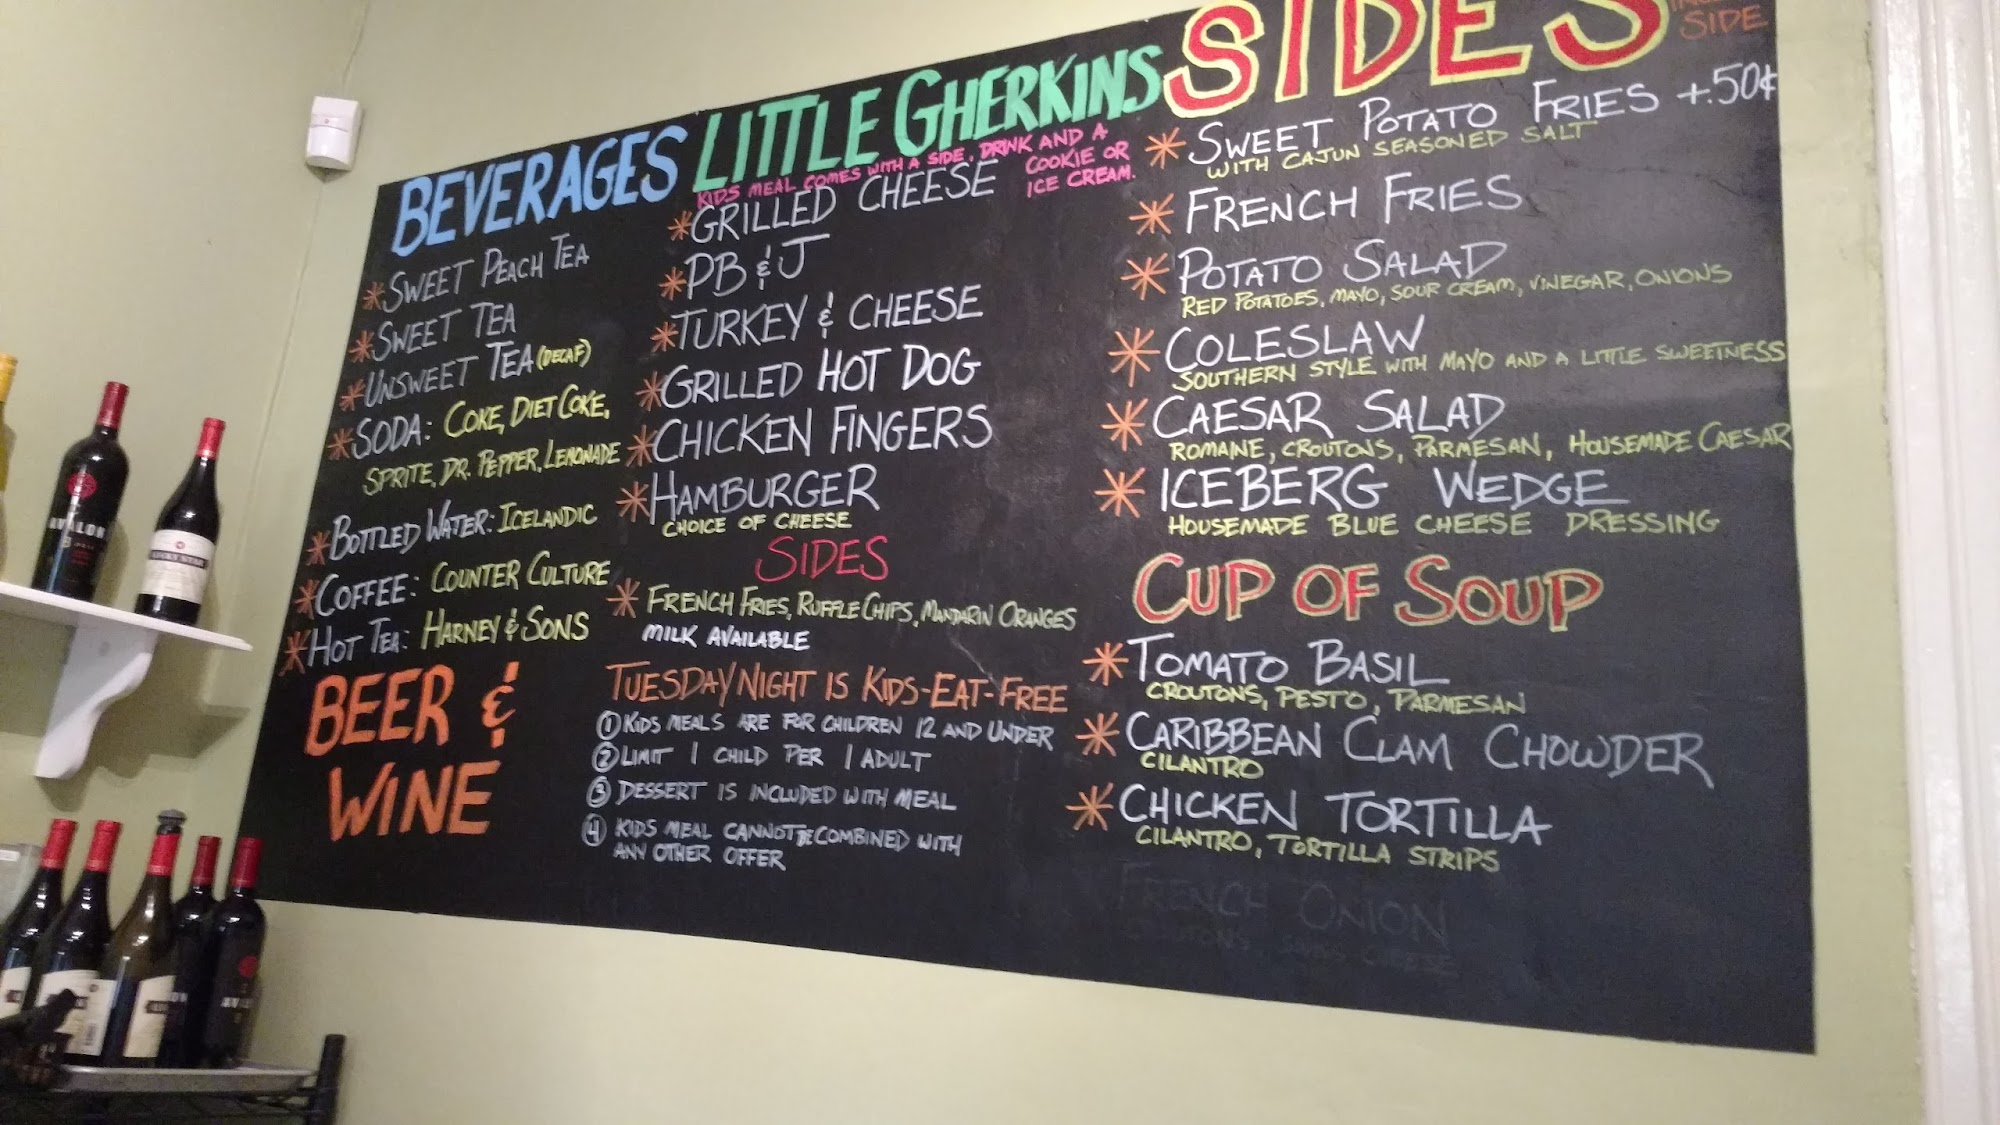 BEVERAGES
* SWEET PEACH TEA
* SWEET TEA
* UNSWEET TEA (DECAF)
* SODA: COKE, DIET COKE,
SPRITE, DR. PEPPER, LEMONADE
* BOTTLED WATER: ICELANDIC
* COFFEE: COUNTER CULTURE
* HOT TEA: HARNEY & SONS
BEER &
WINE
LITTLE GHERKINS
KIDS MEAL COMES WITH A SIDE, DRINK AND A
COOKIE OR
ICE CREAM.
* GRILLED CHEESE
* PB & J
* TURKEY & CHEESE
* GRILLED HOT DOG
* CHICKEN FINGERS
* HAMBURGER
CHOICE OF CHEESE
SIDES
* FRENCH FRIES, RUFFLE CHIPS, MANDARIN ORANGES
MILK AVAILABLE
TUESDAY NIGHT IS KIDS-EAT-FREE
① KIDS MEALS ARE FOR CHILDREN 12 AND UNDER
② LIMIT 1 CHILD PER 1 ADULT
③ DESSERT IS INCLUDED WITH MEAL
④ KIDS MEAL CANNOT BE COMBINED WITH
ANY OTHER OFFER
SIDES
SIDE
* SWEET POTATO FRIES +.50¢
WITH CAJUN SEASONED SALT
* FRENCH FRIES
* POTATO SALAD
RED POTATOES, MAYO, SOUR CREAM, VINEGAR, ONIONS
* COLESLAW
SOUTHERN STYLE WITH MAYO AND A LITTLE SWEETNESS
* CAESAR SALAD
ROMAINE, CROUTONS, PARMESAN, HOUSEMADE CAESAR
* ICEBERG WEDGE
HOUSEMADE BLUE CHEESE DRESSING
CUP OF SOUP
* TOMATO BASIL
CROUTONS, PESTO, PARMESAN
* CARIBBEAN CLAM CHOWDER
CILANTRO
* CHICKEN TORTILLA
CILANTRO, TORTILLA STRIPS
FRENCH ONION
CROUTONS, SWISS CHEESE
AVALON